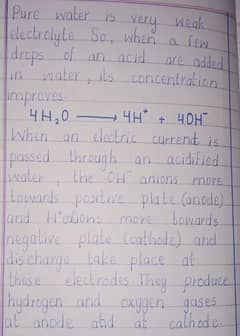 Pure water is very weak
electrolyte So, when a few
drops of an acid are added
in water, its concentration
improves.
4H₂O ⟶ 4H⁺ + 4OH⁻
When an electric current is
passed through an acidified
water, the OH⁻ anions move
towards positive plate (anode)
and H⁺ations move towards
negative plate (cathode) and
discharge take place at
these electrodes. They produce
hydrogen and oxygen gases
at anode and at cathode